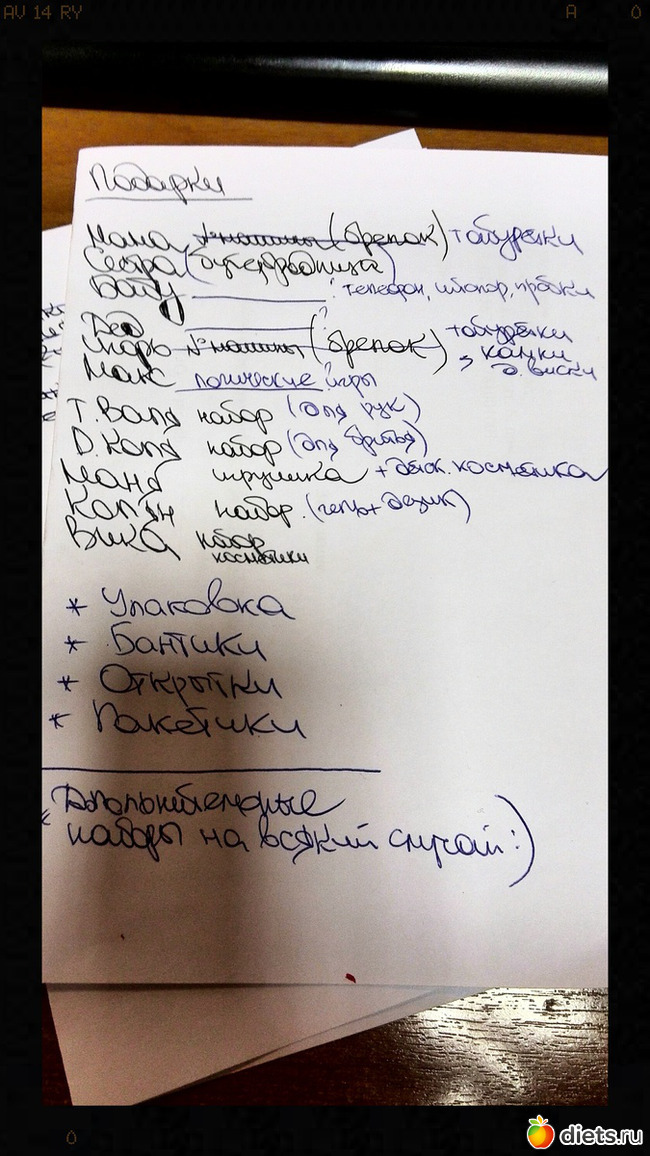 AV 14 RY A 0
Подарки
Мама № машины (брелок) + табуретки
Сестра (бутербродница)
Бабу ? телефон, штопор, пробки
Дед ?
Игорь № машины (брелок) + табуретки
, камки д. виски
Макс логические игры
Т. Валя набор (для рук)
Д. Коля набор (для бритья)
Маня игрушка + детск. косметика
набор (гель + дезик)
Вика набор косметики
* Упаковка
* Бантики
* Открытки
* Пакетики
* Дополнительные
наборы на всякий случай :)
0
diets.ru